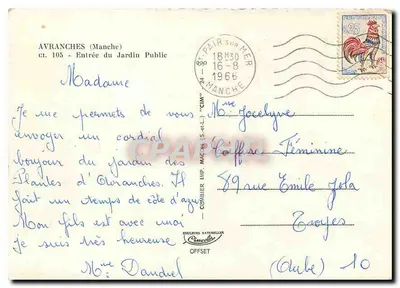 AVRANCHES (Manche)
ct. 105 - Entrée du Jardin Public
St PAIR sur MER
18H30
16-8
1966
MANCHE
Madame
Je me permets de vous
envoyer un cordial
bonjour du jardin des
Plantes d'Avranches. Il
fait un temps de côte d'azur
Mon fils est avec moi
je suis très heureuse
Mme
COMBIER IMP. MACON (S.-et-L.) "CIM"
COULEURS NATURELLES
OFFSET
Mme Jocelyne
Coiffure Féminine
89 rue Emile Zola
Troyes
(Aube) 10